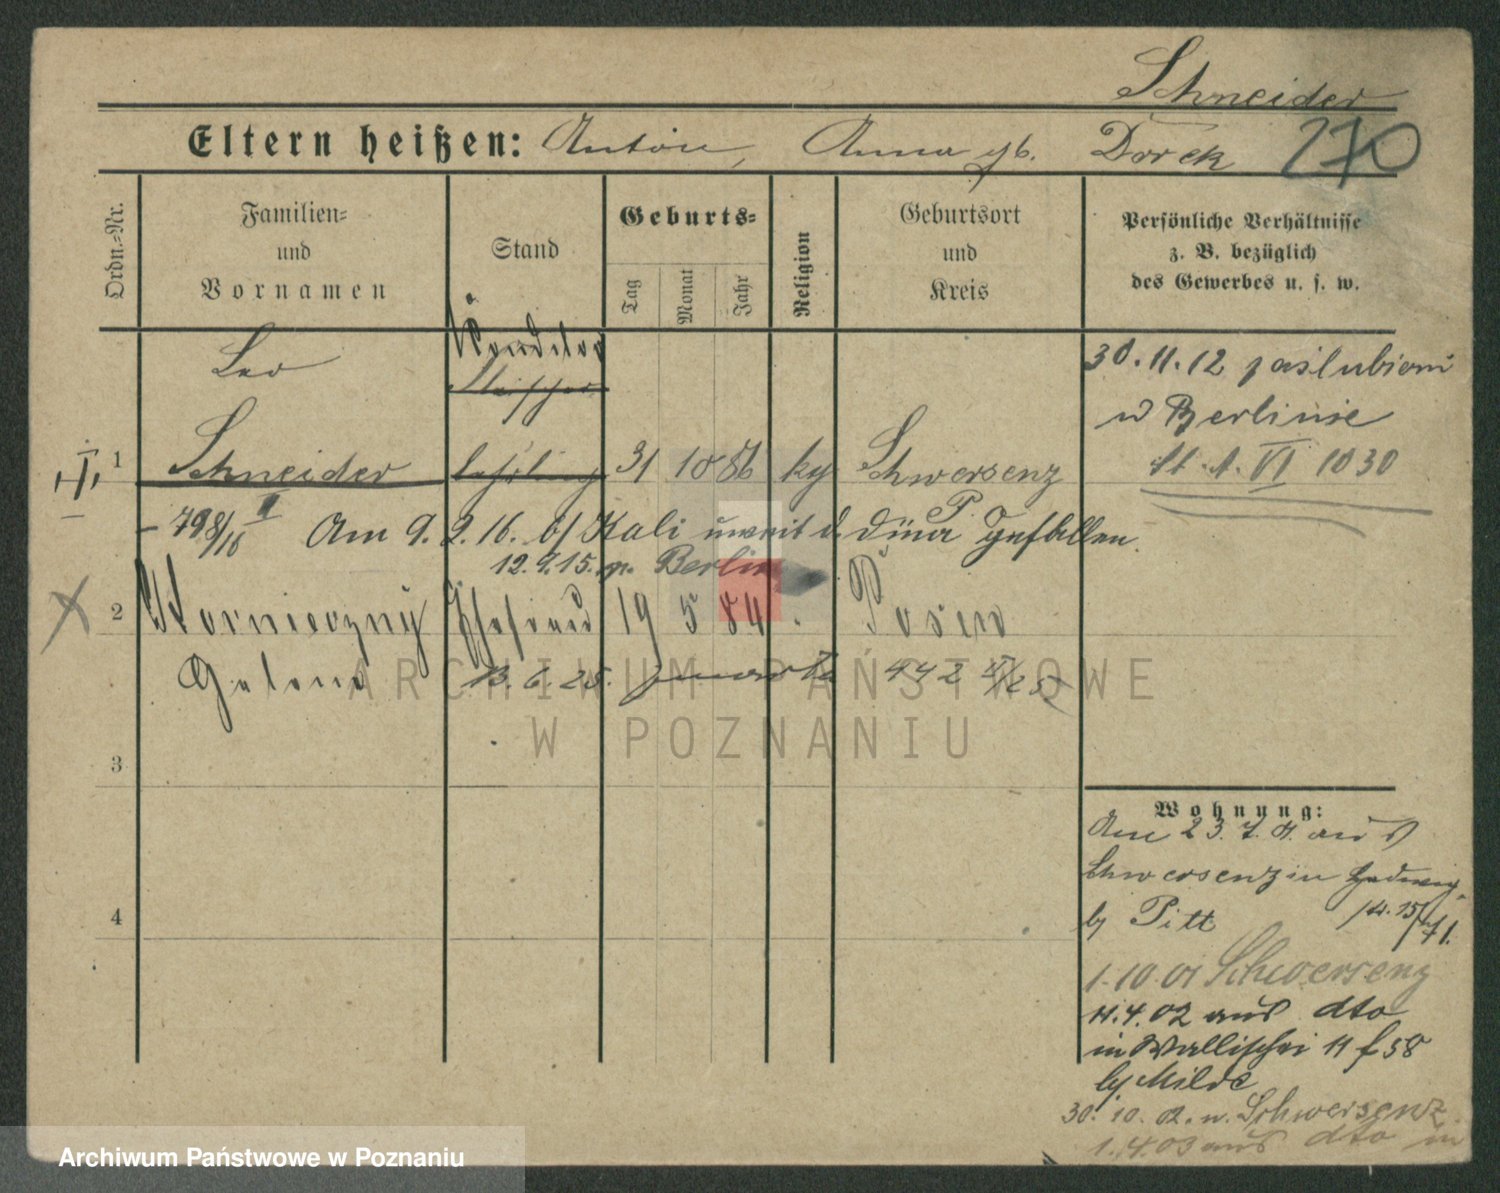 Schneider
Eltern heißen: Anton, Anna gb. Dorek 270
Ordn.=Nr.
Familien=
und
Vornamen
Stand
Geburts=
Tag
Monat
Jahr
Religion
Geburtsort
und
Kreis
Persönliche Verhältnisse
z. B. bezüglich
des Gewerbes u. s. w.
Leo
Konditor
30.11.12 zaślubieni
w Berlinie
1 Schneider 31 10 86 Schwersenz
St. A. VI 1030
P.
Am 9. 2. 16. Kali unweit d. Düna gefallen.
12.9.15. n. Berlin
2 Ehefrau 19 5 84 Posen
13. 6. 25.
3
4
Wohnung:
Am 23. 7. 01. aus
Schwersenz in
by Pitt
1.10.01 Schwersenz
11.4.02 aus dto
in Wallischei 11 f 58
by Milde
30.10.02. n. Schwersenz
1.4.03 aus dto in
ARCHIWUM PAŃSTWOWE
W POZNANIU
Archiwum Państwowe w Poznaniu